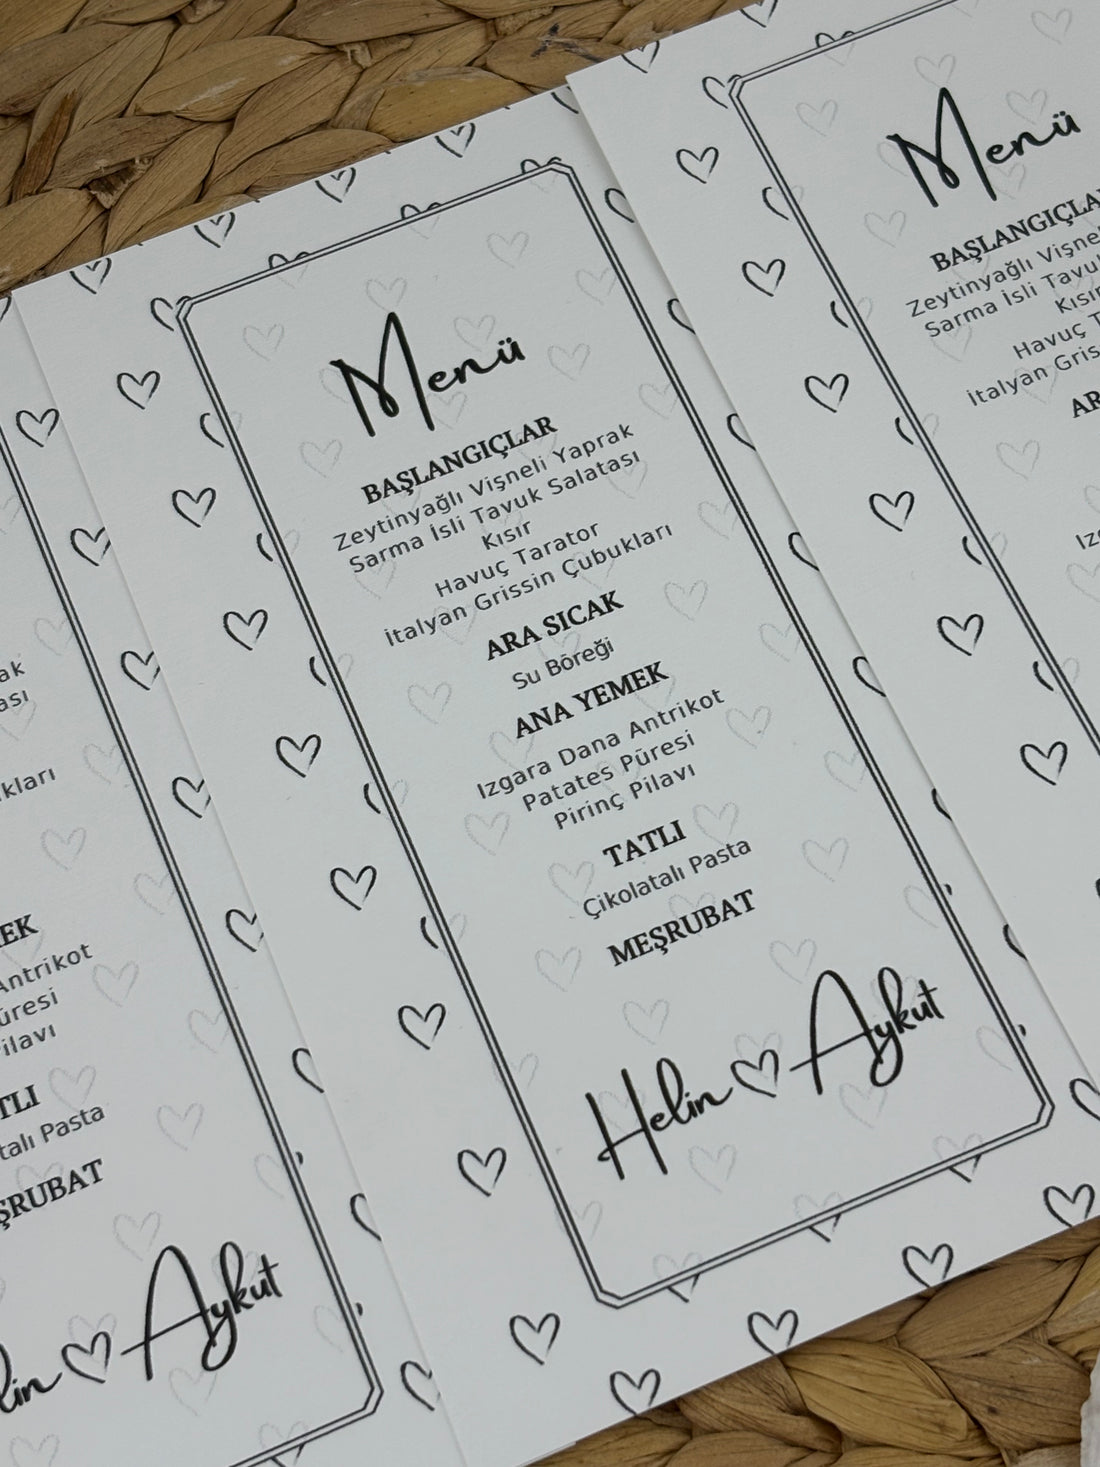 Menü
BAŞLANGIÇLAR
Zeytinyağlı Vişneli Yaprak
Sarma İsli Tavuk Salatası
Kısır
Havuç Tarator
İtalyan Grissin Çubukları
ARA SICAK
Su Böreği
ANA YEMEK
Izgara Dana Antrikot
Patates Püresi
Pirinç Pilavı
TATLI
Çikolatalı Pasta
MEŞRUBAT
Helin Aykut
Menü
BAŞLANGIÇLA
Zeytinyağlı Vişne
Sarma İsli Tavu
Kısır
Havuç T
İtalyan Gris
AR
Iz
ak
ası
kları
EK
Antrikot
üresi
ilavı
TLI
talı Pasta
ŞRUBAT
lin Aykut